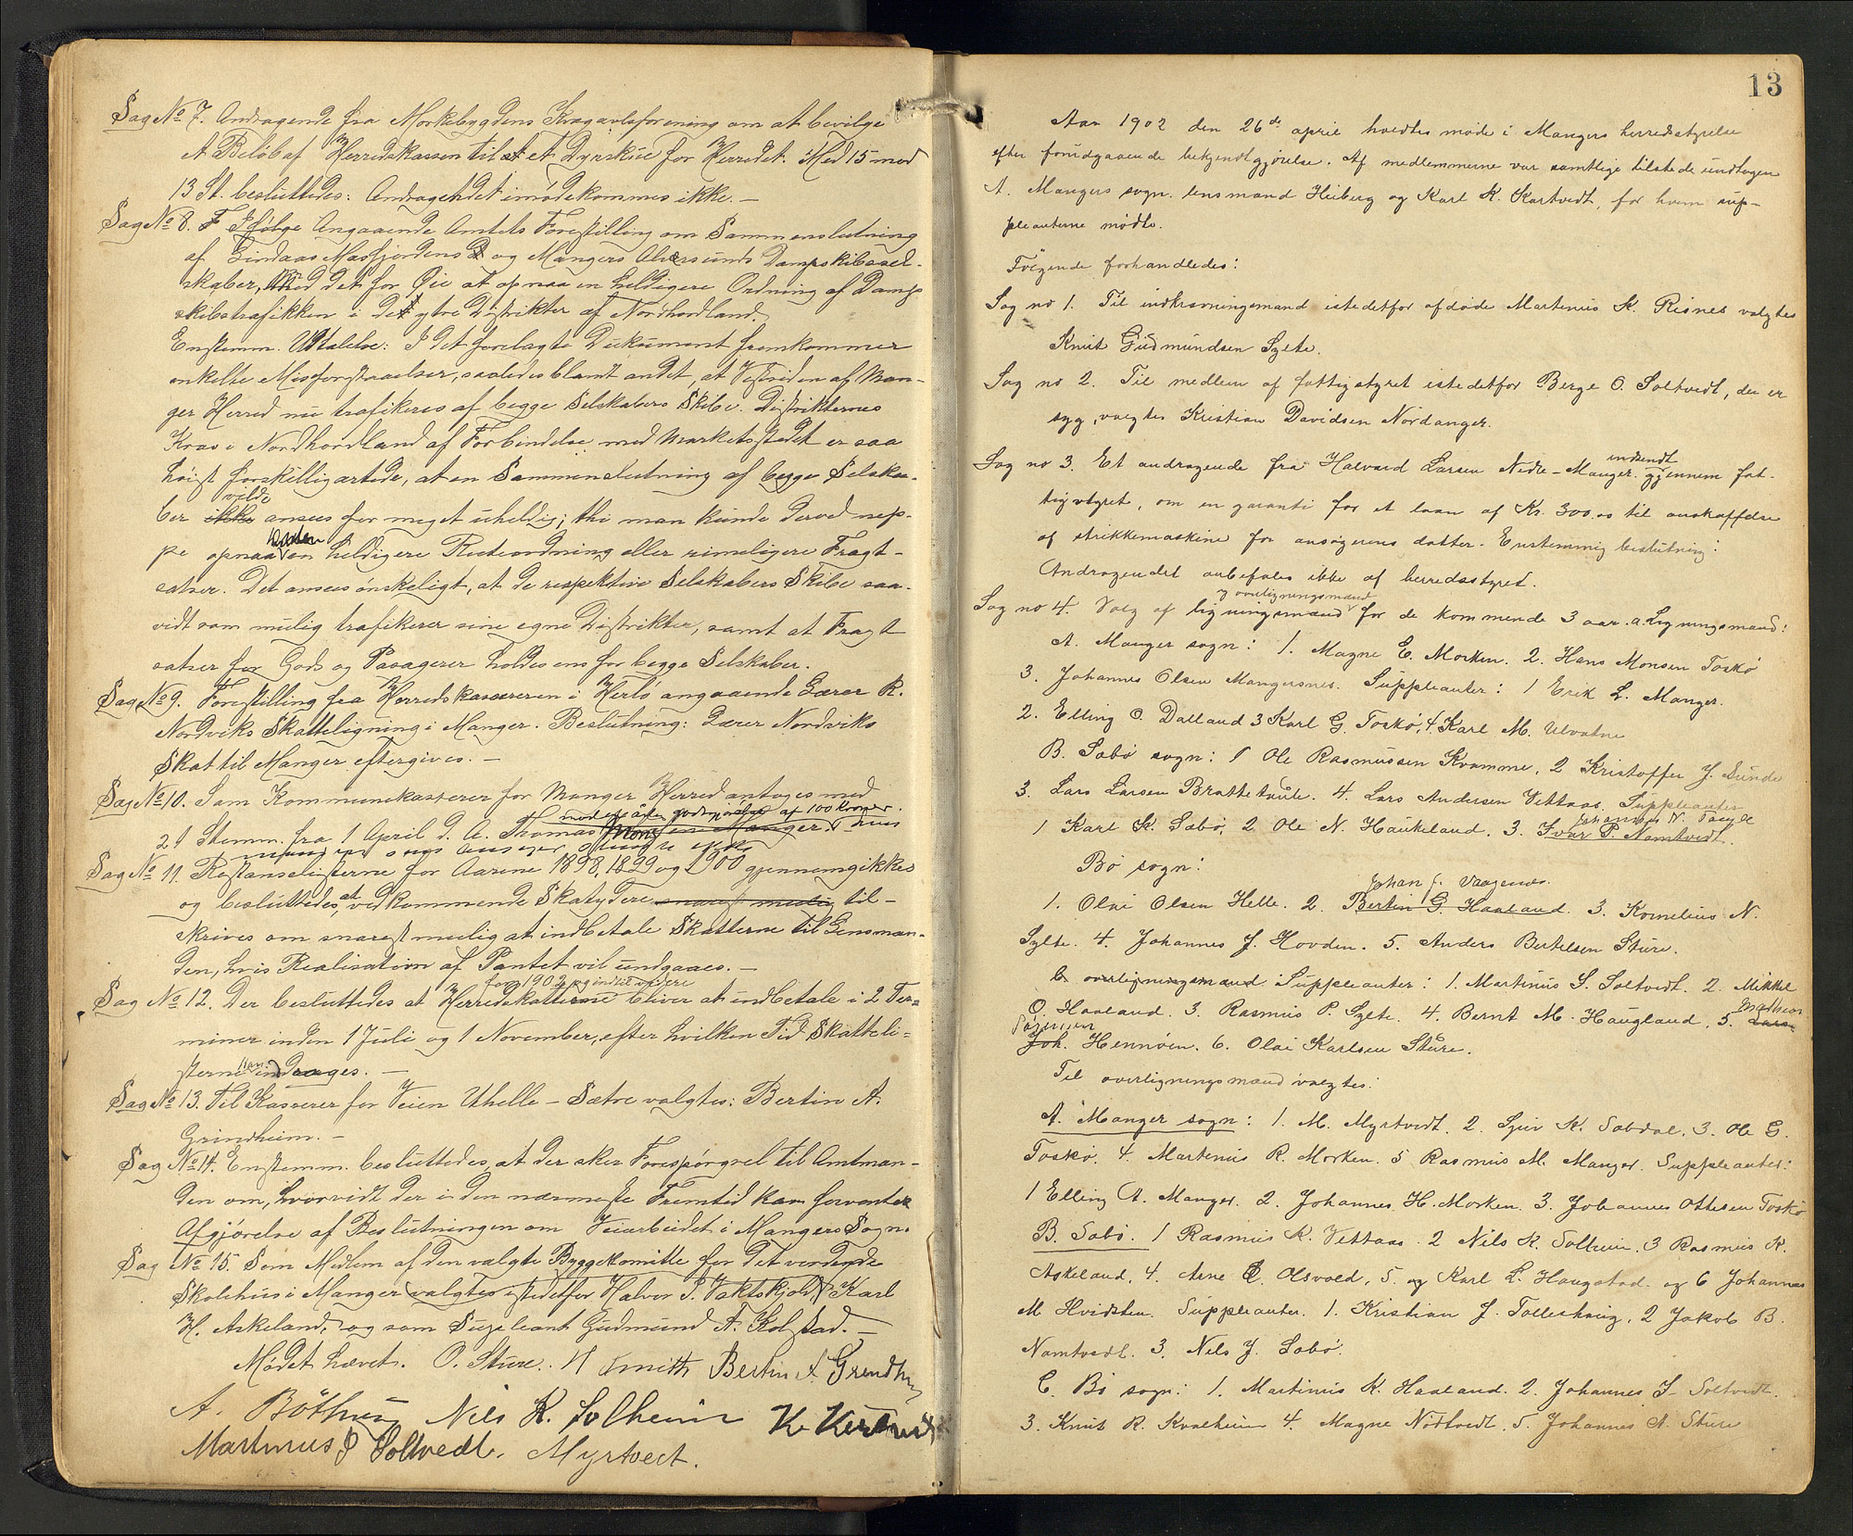 Sag No 7. Andragende fra Morkebygdens Kvægavlsforening om at bevilge
et Beløb af Herredskassen til et Dyrskue for Herredet. Med 15 mod
13 St. besluttedes: Andragendet imødekommes ikke. —
Sag No 8. Ifølge Angaaende Amtets Forestilling om Sammenslutning
af Lindaas Masfjordens og Mangers Alversunds Dampskibssel-
skaber, med det for Øie at opnaa en heldigere Ordning af Damp
skibstrafikken i de ytre Distrikter af Nordhordland.
Enstemm. Udtalelse: I det forelagte Dukument fremkommer
enkelte Misforstaaelser, saaledes blant andet, at Vestsiden af Man-
ger Herred nu trafikeres af begge Selskabers Skibe. Distrikternes
Krav i Nordhordland af Forbindelse med Markedsstedet er saa
høist forskilligartede, at en Sammenslutning af begge Selska-
ber ikke vilde ansees for meget uheldig; thi man kunde derved nep-
pe opnaa hverken en heldigere Ruteordning eller rimeligere Fragt-
satser. Det ansees ønskeligt, at de respektive Selskabers Skibe saa-
vidt som mulig trafikerer sine egne Distrikter, samt at Fragt
satser for Gods og Pasagerer holdes ens for begge Selskaber.
Sag No 9. Forestilling fra Herredskassereren i Herlø angaaende Lærer R.
Nordviks Skatteligning i Manger. Beslutning: Lærer Nordviks
Skat til Manger eftergives. —
Sag No 10. Som Kommunekasserer for Manger Herred antoges med
mod en årlig godtgjørelse af 100 kroner.
21 Stemm. fra 1 April d. A. Thomas Monsen Manger
Sag No 11. Restanselisterne for Aarene 1898, 1899 og 1900 gjennemgikkes
og besluttedes, at vedkommende Skatydere snarest mulig til-
skrives om snarest mulig at indbetale Skatterne til Lensman-
den, hvis Realisation af Pantet vil undgaaes. —
for 1902 og indtil videre
Sag No 12. Der besluttedes at Herredskatterne bliver at indbetale i 2 Ter-
miner inden 1 Juli og 1 November, efter hvilken Tid Skatteli-
sterne inddrages. —
Sag No 13. Til Kasserer for Veien Uthelle – Sætre valgtes: Bertin A.
Grindheim. —
Sag No 14. Enstemm. besluttedes, at der sker Forespørgsel til Amtman-
den om, hvorvidt der i den nærmeste Fremtid kan forventes
Afgjørelse af Beslutningen om Veiarbeidet i Mangers Sogn.
Sag No 15. Som Medlem af den valgte Byggekomitte for det vordende
Skolehus i Manger valgtes istedetfor Halvor P. Vaktskjold Karl
H. Askeland, og som Supleant Gudmund A. Kolstad. —
Mødet hævet. O. Sture. N Smith Bertin A. Grendhm
A. Bøthun Nils K. Solheim K. Kartveit
Martinus S Soltvedt. Myrtvedt.
13
Aar 1902 den 26de april holdtes møde i Mangers herredsstyrelse
efter forudgaaende bekjendtgjørelse. Af medlemmerne var samtlige tilstede undtagen
A. Mangers sogn. lensmand Heiberg og Karl K. Kartvedt, for hvem sup-
pleanterne mødte.
Følgende forhandledes:
Sag no 1. Til indkrævningsmand istedetfor afdøde Martinus K. Risnes valgtes
Knut Gudmundsen Sylte.
Sag no 2. Til medlem af fattigstyret istedetfor Berge O. Soltvedt, der er
syg, valgtes Kristian Davidsen Nordanger.
indsendt
Sag no 3. Et andragende fra Halvard Larsen Nedre-Manger. gjennem fat-
tigstyret, om en garanti for et laan af Kr. 300.00 til anskaffelse
af strikkemaskine for ansøgerens datter. Enstemmig beslutning:
Andragendet anbefales ikke af herredsstyret.
og overligningsmænd
Sag no 4. Valg af ligningsmænd for de kommende 3 aar. a. Ligningsmænd:
A. Manger sogn: 1. Magne E. Morken. 2. Hans Monsen Toskø
3. Johannes Olsen Mangersnes. Suppleanter: 1 Erik L. Manger.
2. Elling O. Dalland 3 Karl G. Toskø, 4. Karl M. Ulvatne
B. Sæbø sogn: 1 Ole Rasmussen Kvamme, 2 Kristoffer J. Sunde
3. Lars Larsen Brattetaule. 4. Lars Andersen Vettaas. Suppleanter
Johannes N. Tange
1 Karl K. Sæbø, 2 Ole N. Haukeland. 3. Ivar P. Namtvedt.
Bø sogn:
Johan J. Vaagenes.
1. Olai Olsen Helle. 2. Bertin G. Haaland. 3. Kornelius N.
Sylte. 4. Johannes J. Hovden. 5. Anders Bertelsen Sture.
b overligningsmænd Suppleanter: 1. Martinus S. Soltvedt. 2. Mikkel
O. Haaland. 3. Rasmus P. Sylte. 4. Bernt M. Haugland. 5. Lars
Joh. Hennøen. 6. Olai Karlsen Sture.
Til overligningsmænd valgtes:
A. Manger sogn: 1. M. Myrtvedt. 2. Sjur K. Sæbdal. 3. Ole G.
Toskø. 4. Martenus R. Morken. 5 Rasmus M. Manger. Suppleanter:
1 Elling A. Manger. 2. Johannes H. Morken. 3. Johannes Ottesen Toskø
B. Sæbø. 1 Rasmus K. Vettaas. 2 Nils K. Solheim. 3 Rasmus K.
Askeland. 4. Arne L. Olsvold, 5. og Karl L. Haugstad. og 6 Johannes
M Hvidsten. Suppleanter. 1. Kristian J. Tollershaug, 2 Jakob B.
Namtvedt. 3. Nils J. Sæbø.
C. Bø sogn: 1. Martinus K. Haaland. 2. Johannes S Soltvedt.
3. Knut R. Kvalheim 4. Magne Nøttvedt. 5. Johannes A. Sture